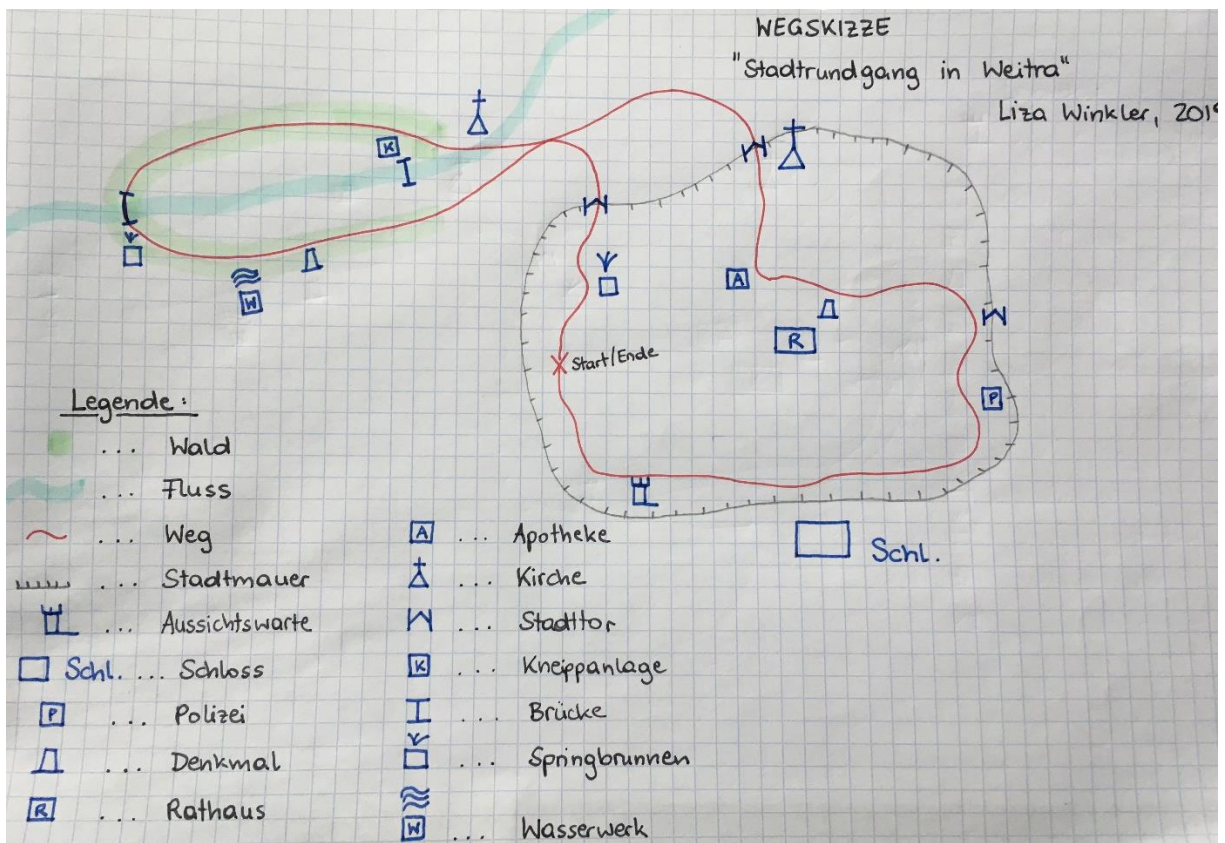 WEGSKIZZE
"Stadtrundgang in Weitra"
Liza Winkler, 2019
K
W
A
R
Start/Ende
P
Schl.
Legende:
... Wald
... Fluss
... Weg
... Stadtmauer
... Aussichtswarte
Schl. ... Schloss
P ... Polizei
... Denkmal
R ... Rathaus
A ... Apotheke
... Kirche
... Stadttor
K ... Kneippanlage
... Brücke
... Springbrunnen
W ... Wasserwerk